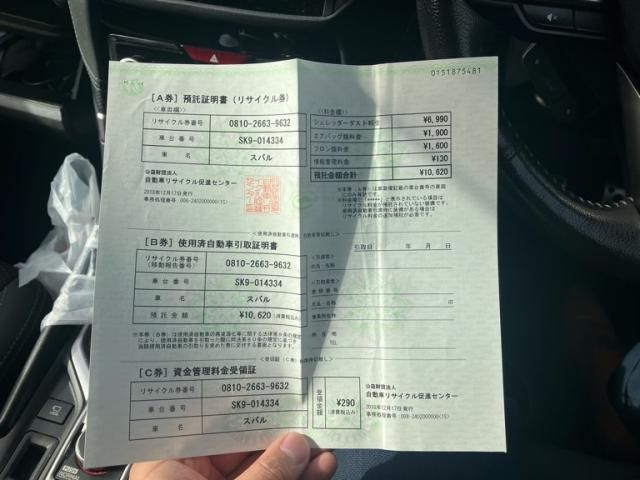 0151875481
[A券] 預託証明書 (リサイクル券)
<<車両欄>>
リサイクル券番号 0810-2663-9632
車台番号 SK9-014334
車名 スバル
公益財団法人
自動車リサイクル促進センター
2018年12月17日発行
<<料金欄>>
シュレッダーダスト料金 ¥6,990
エアバッグ類料金 ¥1,900
フロン類料金 ¥1,600
情報管理料金 ¥130
預託金額合計 ¥10,620
[B券] 使用済自動車引取証明書
リサイクル券番号
(移動報告番号) 0810-2663-9632
車台番号 SK9-014334
車名 スバル
預託金額 ¥10,620 (消費税込み)
引取日 年 月 日
<引渡者>
氏名・名称
<引取者>
登録番号
氏名・名称 印
事業所名
所在地
電話番号
[C券] 資金管理料金受領証
リサイクル券番号 0810-2663-9632
車台番号 SK9-014334
車名 スバル
受領金額 ¥290
(消費税込み)
公益財団法人
自動車リサイクル促進センター
2018年12月17日発行